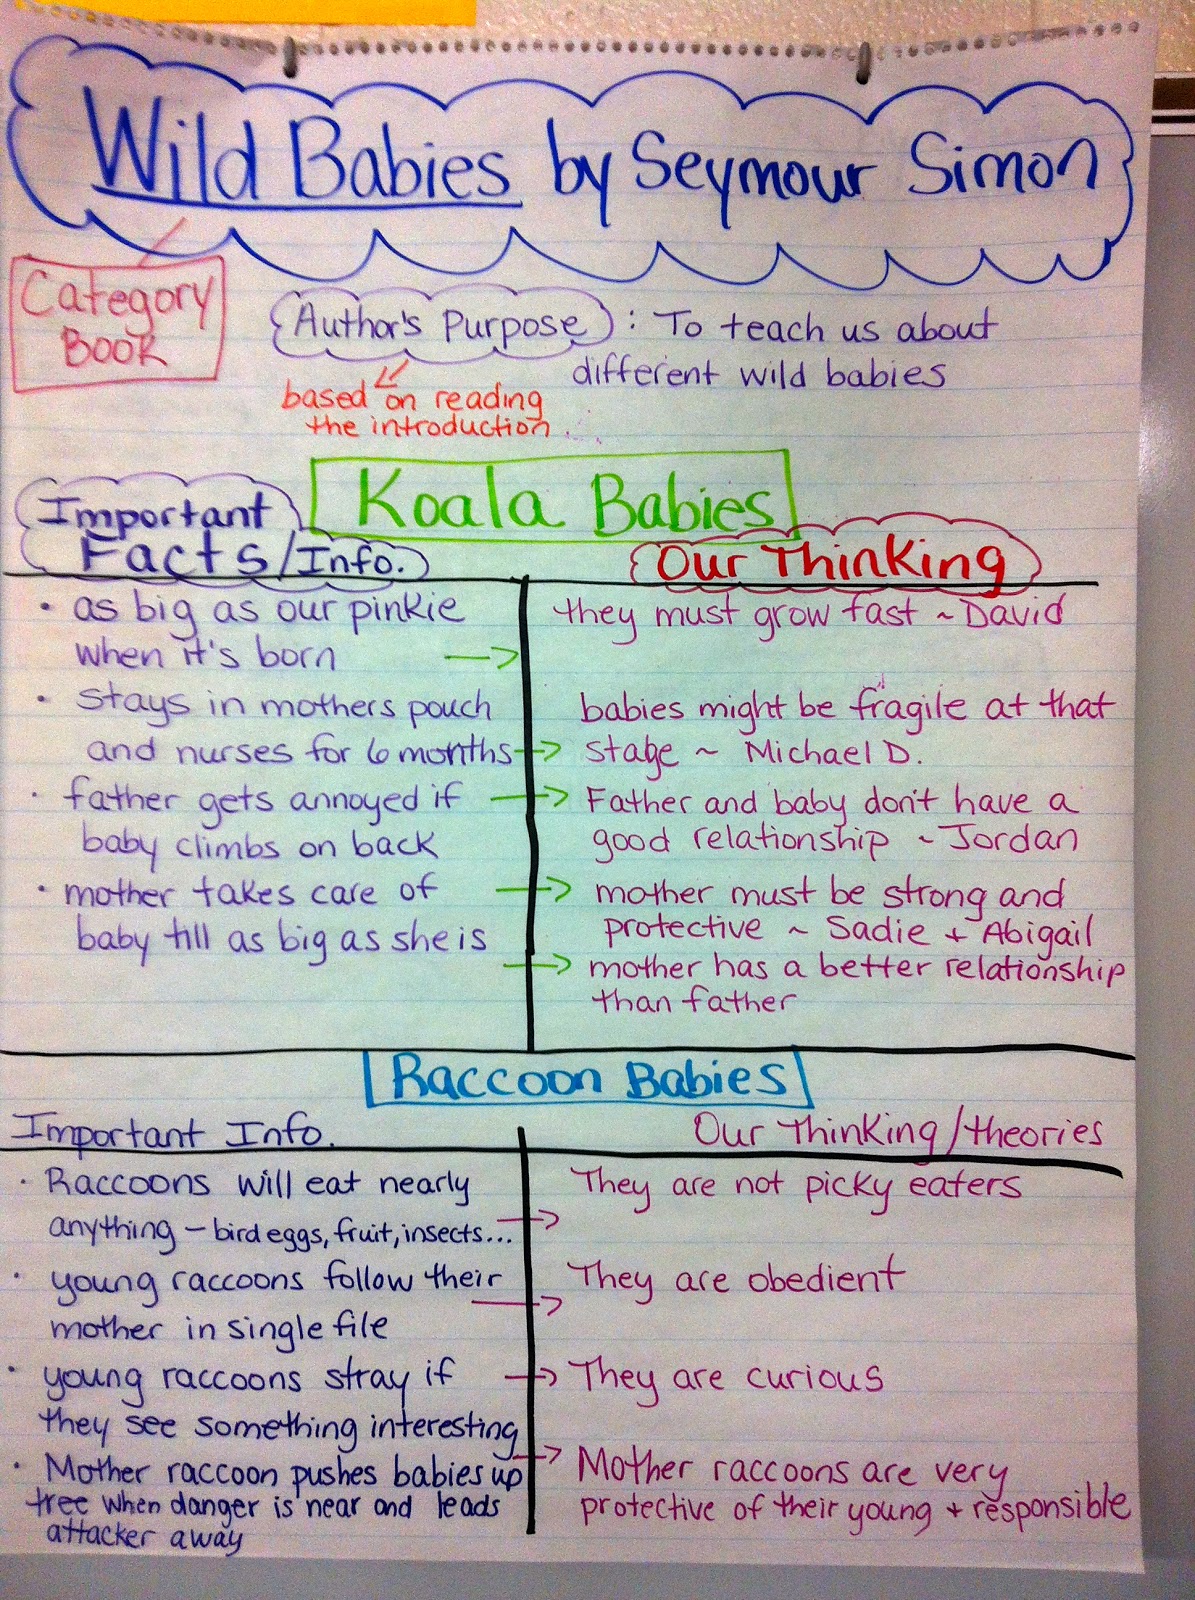 Wild Babies by Seymour Simon
Category
Book
Author's Purpose : To teach us about
different wild babies
based on reading
the introduction
Koala Babies
Important
Facts/Info.
Our Thinking
• as big as our pinkie
when it's born
they must grow fast ~ David
• stays in mothers pouch
and nurses for 6 months
babies might be fragile at that
stage ~ Michael D.
• father gets annoyed if
baby climbs on back
Father and baby don't have a
good relationship ~ Jordan
• mother takes care of
baby till as big as she is
mother must be strong and
protective ~ Sadie + Abigail
mother has a better relationship
than father
Raccoon Babies
Important Info.
Our Thinking/theories
• Raccoons will eat nearly
anything – bird eggs, fruit, insects...
They are not picky eaters
• young raccoons follow their
mother in single file
They are obedient
• young raccoons stray if
they see something interesting
They are curious
• Mother raccoon pushes babies up
tree when danger is near and leads
attacker away
Mother raccoons are very
protective of their young + responsible